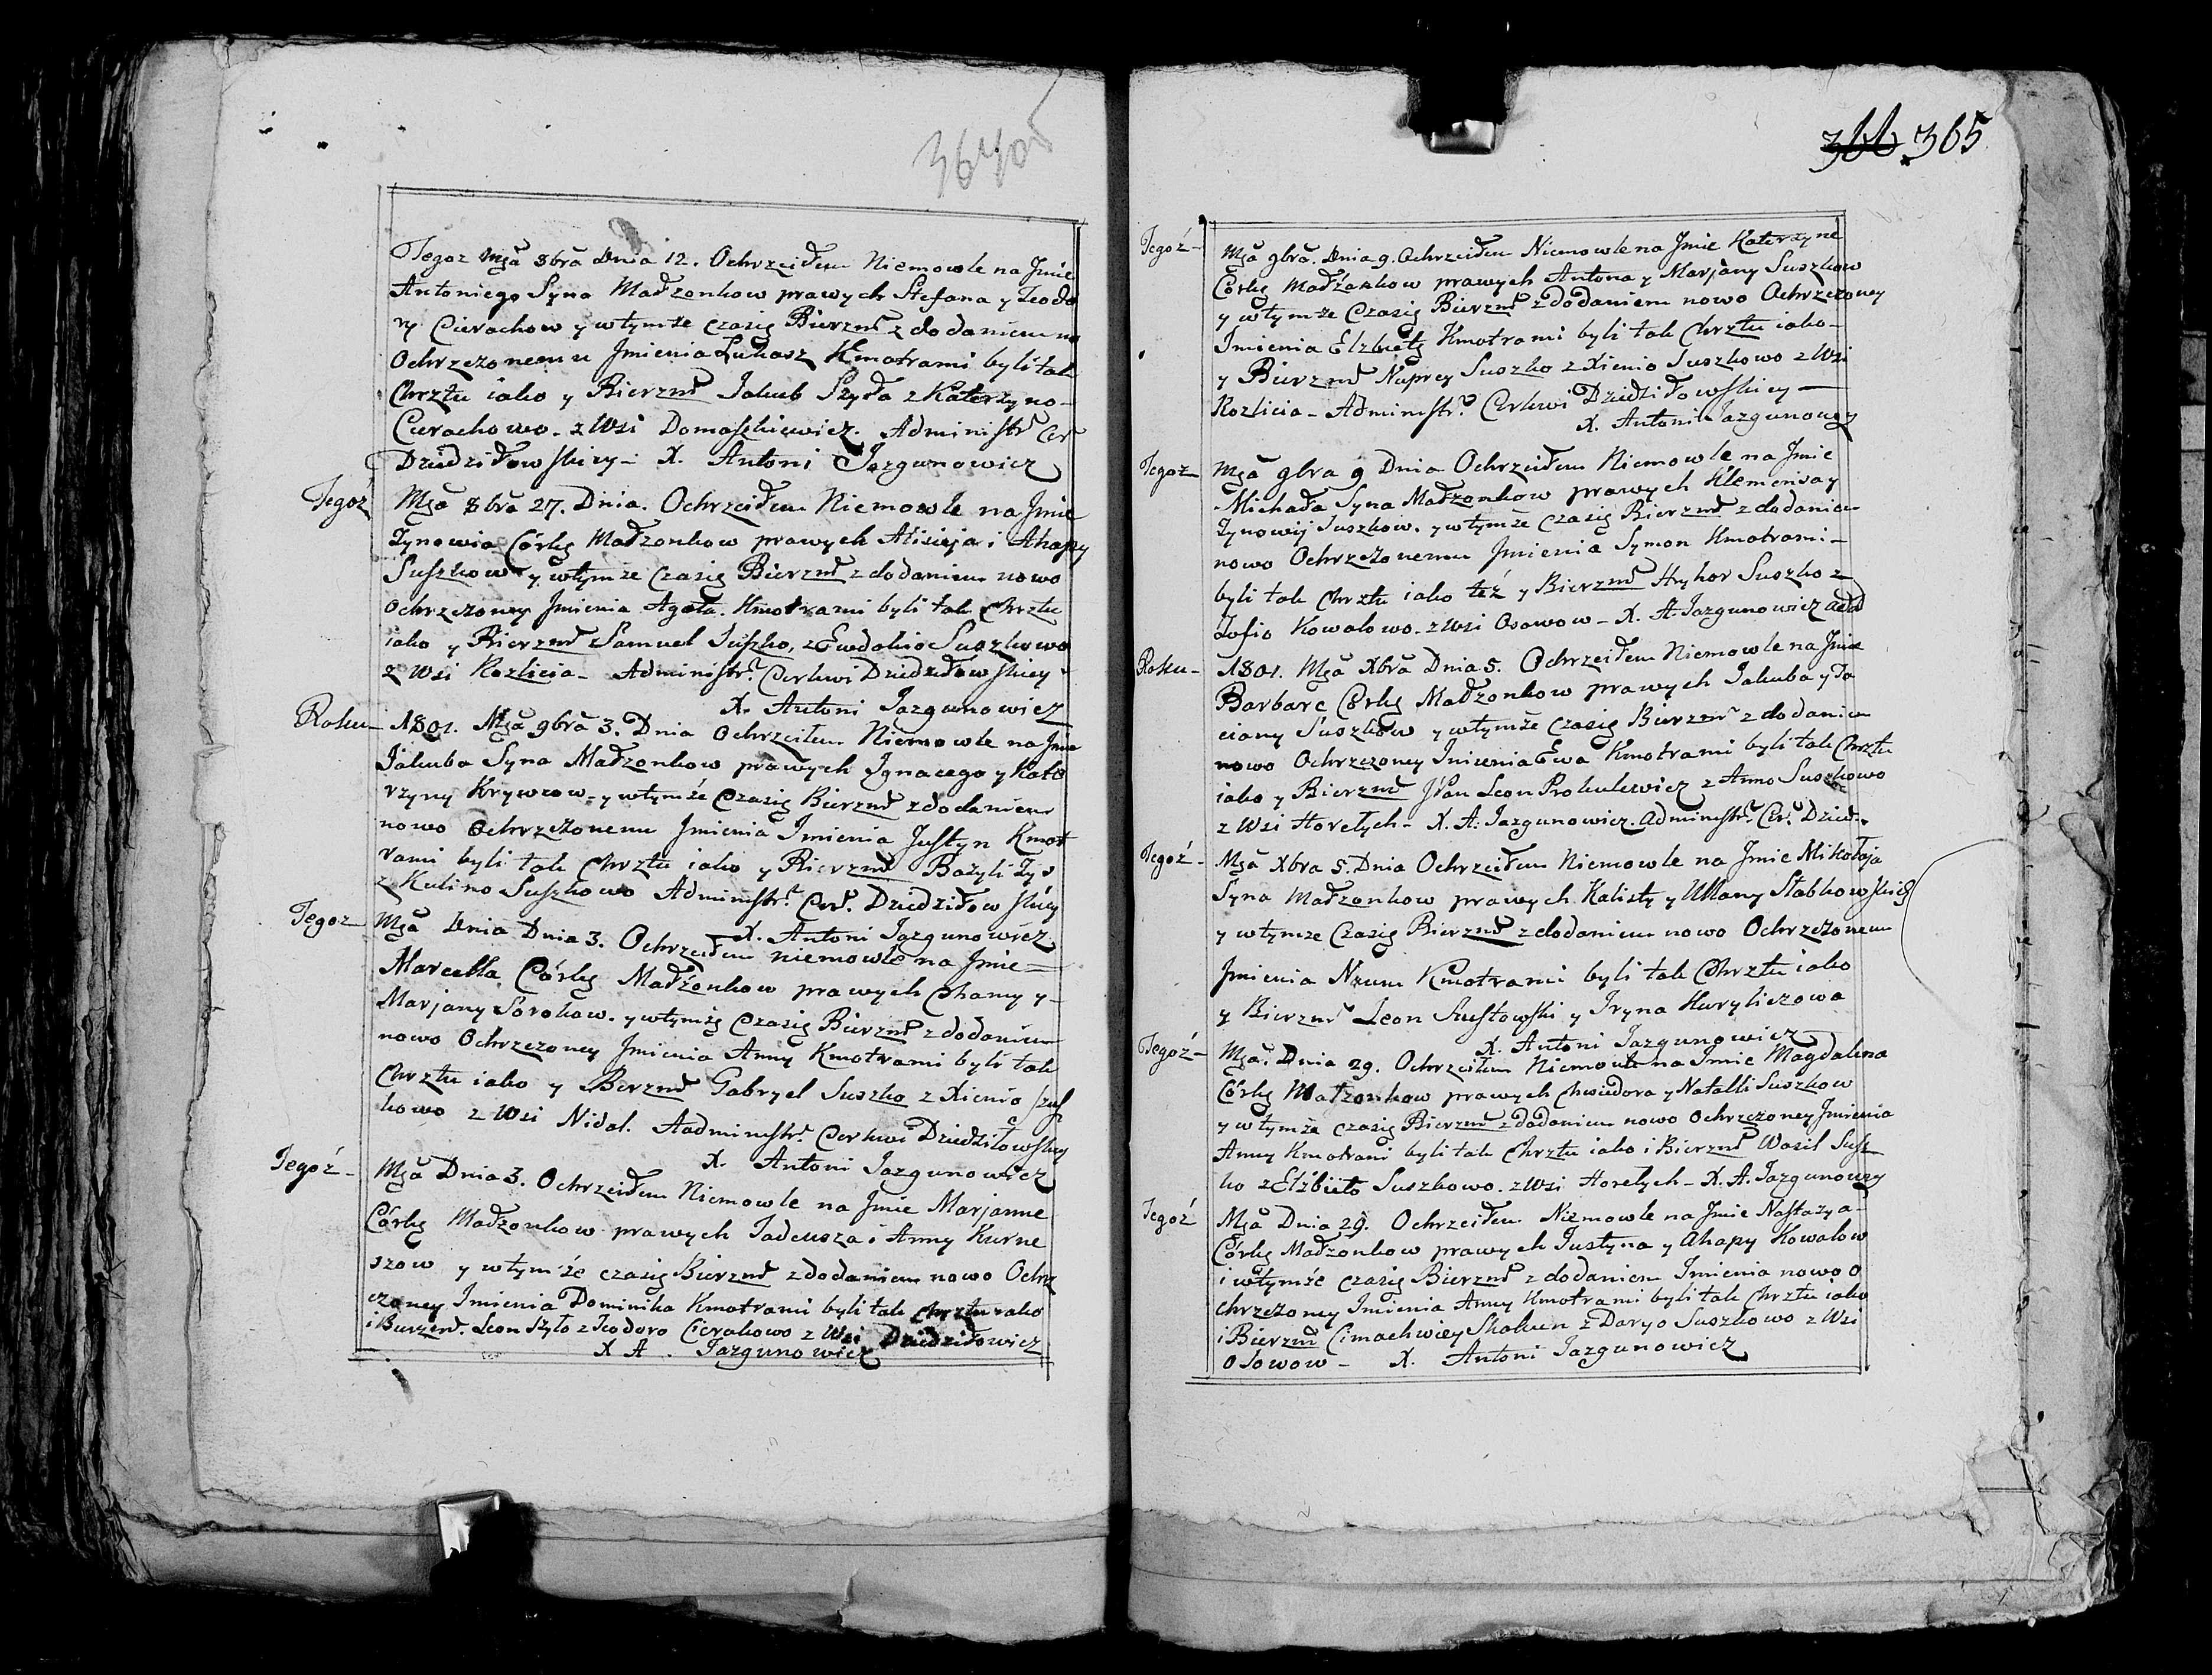 364об
Tegoz Mça 8bra Dnia 12. Ochrzciłem Niemowle na Jmie
Antoniego Syna Małzonkow prawych Stefana y Teodo
ry Cierachow y wtymże czasię Bierzm̃ z dodaniem no
Ochrzczonemu Jmienia Łukasz Kmotrami byli tak
Chrztu iako y Bierzm̃ Jakub Szyła z Katerzyno-
Cierachowo. z Wsi Domaszkiewicz. Administr̃ Cer̃
Dziedziłowskiey- X. Antoni Jazgunowicz
Tegoż Mça 8bra 27. Dnia. Ochrzciłem Niemowle na Jmie
Zynowia Córkę Małzonkow prawych Alisieja i Ahapy
Suszkow y wtymże Czasię Bierzm̃ z dodaniem nowo
ochrzczoney Jmienia Agata. Kmotrami byli tak Chrztu
iako y Bierzm̃ Samuel Suszko, z Ewdokio Suszkowo
z Wsi Rozlicia- Administr̃. Cerkwi Dziedziłowskiey-
X. Antoni Jazgunowicz
Roku- 1801. Mça 9bra 3. Dnia Ochrzciłem Niemowle na Jmie
Jakuba Syna Małzonkow prawych Jgnacego y Kate
rzyny Krywcow- y wtymże Czasię Bierzm̃ z dodaniem
nowo Ochrzczonemu Jmienia Jmienia Justyn Kmot
rami byli tak Chrztu iako y Bierzm̃ Bazyli Zys
z Kulino Suszkowo Administr̃. Cer̃. Dziedziłowskiey
X. Antoni Jazgunowicz
Tegoz Mça Dnia Dnia 3. Ochrzciłem niemowle na Jmie-
Marcella Córkę Małżonkow prawych Chamy y-
Marjany Sorokow. y wtymżę Czasię Bierzm̃ z dodaniem
nowo Ochrzczoney Jmienia Anny Kmotrami byli tak
Chrztu iako y Bierzm̃ Gabryel Suszko z Xienio Szusz
kowo z Wsi Nidal. Aadministr̃. Cerkwi Dziedziłowskiey
X. Antoni Jazgunowicz
Tegoż- Mça Dnia 3. Ochrzciłem Niemowle na Jmie Marjanne
Córkę Małzonkow prawych Tadeusza i Anny Kurne
szow y wtymże czasię Bierzm̃ z dodaniem nowo Ochrz
czoney Jmienia Dominika Kmotrami byli tak chrztu iako
i Bierzm̃. Leon Szyło z Teodoro Cierakowo z Wsi Dziedziłowicz
X A. Jazgunowicz
366. 365
Tegoż- Mça 9bra. Dnia 9. Ochrzciłem Niemowle na Jmie Katerzyne
Córkę Małżonkow prawych Antona y Marjany Suszkow
y wtymże Czasię Bierzm̃ z dodaniem nowo Ochrzczoney
Jmienia Elzbietę Kmotrami byli tak Chrztu iako-
y Bierzm̃ Nuprey Suszko z Xienio Suszkowo z Wsi
Rozlicia- Administr̃. Cerkwi Dziedziłowskiey-
X. Antoni Jazgunowicz
Tegoz- Mça 9bra 9 Dnia Ochrzciłem Niemowle na Jmie
Michała Syna Małzonkow prawych Klemensa y
Zynowij Suszkow. y wtymże Czasię Bierzm̃ z dodaniem
nowo Ochrzczonemu Jmienia Symon Kmotrami-
byli tak Chrztu iako też y Bierzm̃ Hryhor Suszko z
Zofio Kowalowo. z Wsi Osowow- X. A. Jazgunowicz
Roku- 1801. Mça Xbra Dnia 5. Ochrzciłem Niemowle na Jmie
Barbare Córkę Małzonkow prawych Jakuba y Ta
ciany Suszkow y wtymże Czasię Bierzm̃ z dodaniem
nowo Ochrzczoney Jmienia Ewa Kmotrami byli tak Chrztu
iako y Bierzm̃ JPan Leon Prokulewicz z Anno Suszkowo
z Wsi Horełych- X. A. Jazgunowicz. Administr̃. Cer̃. Dzied.
Tegoż- Mça Xbra 5. Dnia Ochrzciłem Niemowle na Jmie Mikołaja
Syna Małzonkow prawych Kalisty y Ullany Słabkowskich
y wtymze Czasię Bierzm̃ z dodaniem nowo Ochrzczonem
Jmienia Nawm Kmotrami byli tak Chrztu iako
y Bierzm̃ Leon Szustowski y Jryna Huryliczowa
X. Antoni Jazgunowicz
Tegoż- Mça. Dnia 29. Ochrzciłem Niemowle na Jmie Magdalena
Córkę Małzonkow prawych Chwiedora y Natalli Suszkow
y wtymże czasię Bierzm̃ z dodaniem nowo ochrzczoney Jmienia
Anny Kmotrami byli tak Chrztu iako i Bierzm̃ Wasil Susz
ko z Elżbieto Suszkowo. z Wsi Horełych- X. A. Jazgunowicz
Tegoż Mça Dnia 29. Ochrzciłem Niemowle na Jmie Nastazya-
Córkę Małżonkow prawych Justyna y Ahapy Kowalow
i wtymże czasię Bierzm̃ z dodaniem Jmienia nowo o
chrzczoney Jmienia Anny Kmotrami byli tak Chrztu iako
i Bierzm̃ Cimachwiey Skakun z Daryo Suszkowo z Wsi
Osowow- X. Antoni Jazgunowicz